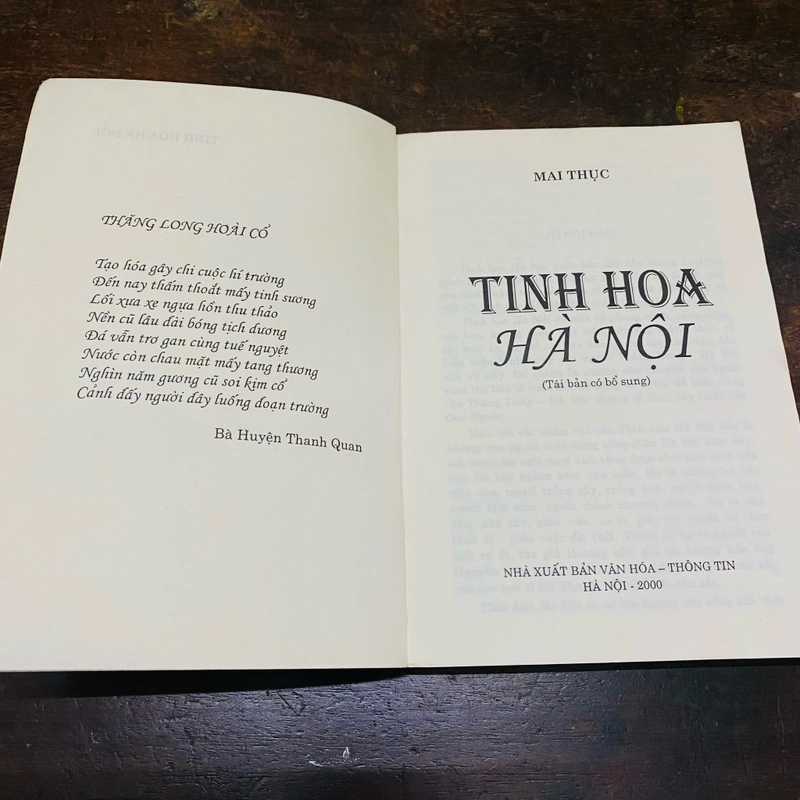 THĂNG LONG HOÀI CỔ
Tạo hóa gây chi cuộc hí trường
Đến nay thấm thoắt mấy tinh sương
Lối xưa xe ngựa hồn thu thảo
Nền cũ lâu đài bóng tịch dương
Đá vẫn trơ gan cùng tuế nguyệt
Nước còn chau mặt mấy tang thương
Nghìn năm gương cũ soi kim cổ
Cảnh đấy người đây luống đoạn trường
Bà Huyện Thanh Quan
MAI THỤC
TINH HOA
HÀ NỘI
(Tái bản có bổ sung)
NHÀ XUẤT BẢN VĂN HÓA – THÔNG TIN
HÀ NỘI - 2000